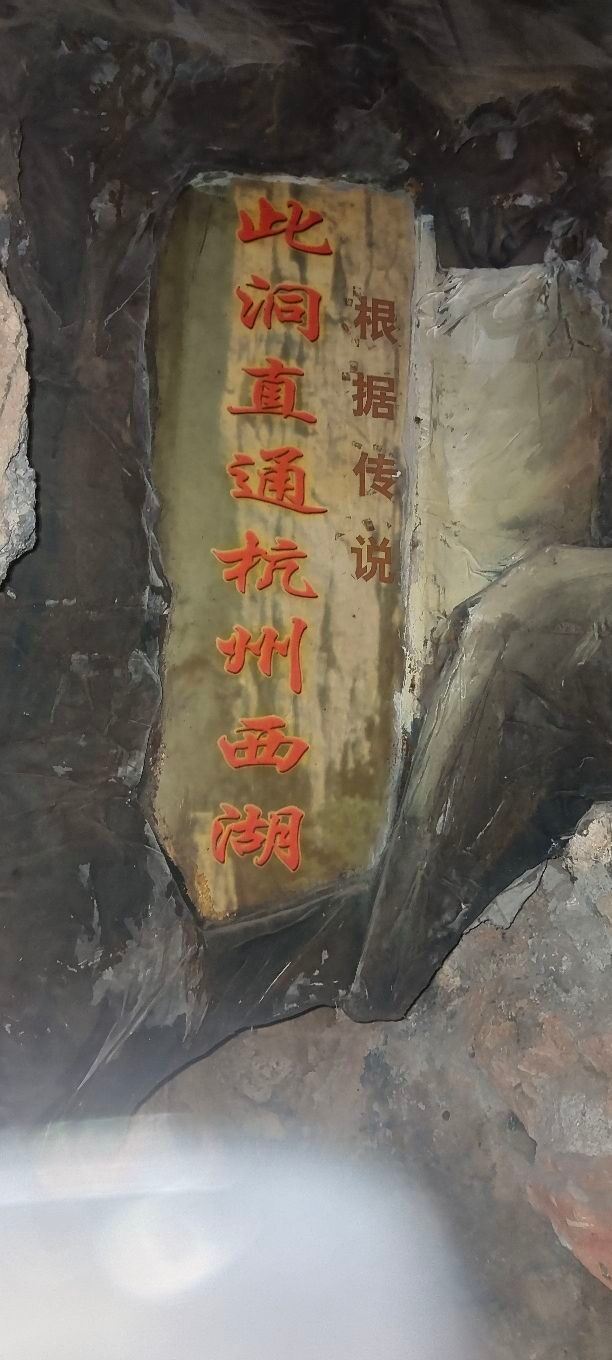 根据传说
此洞直通杭州西湖